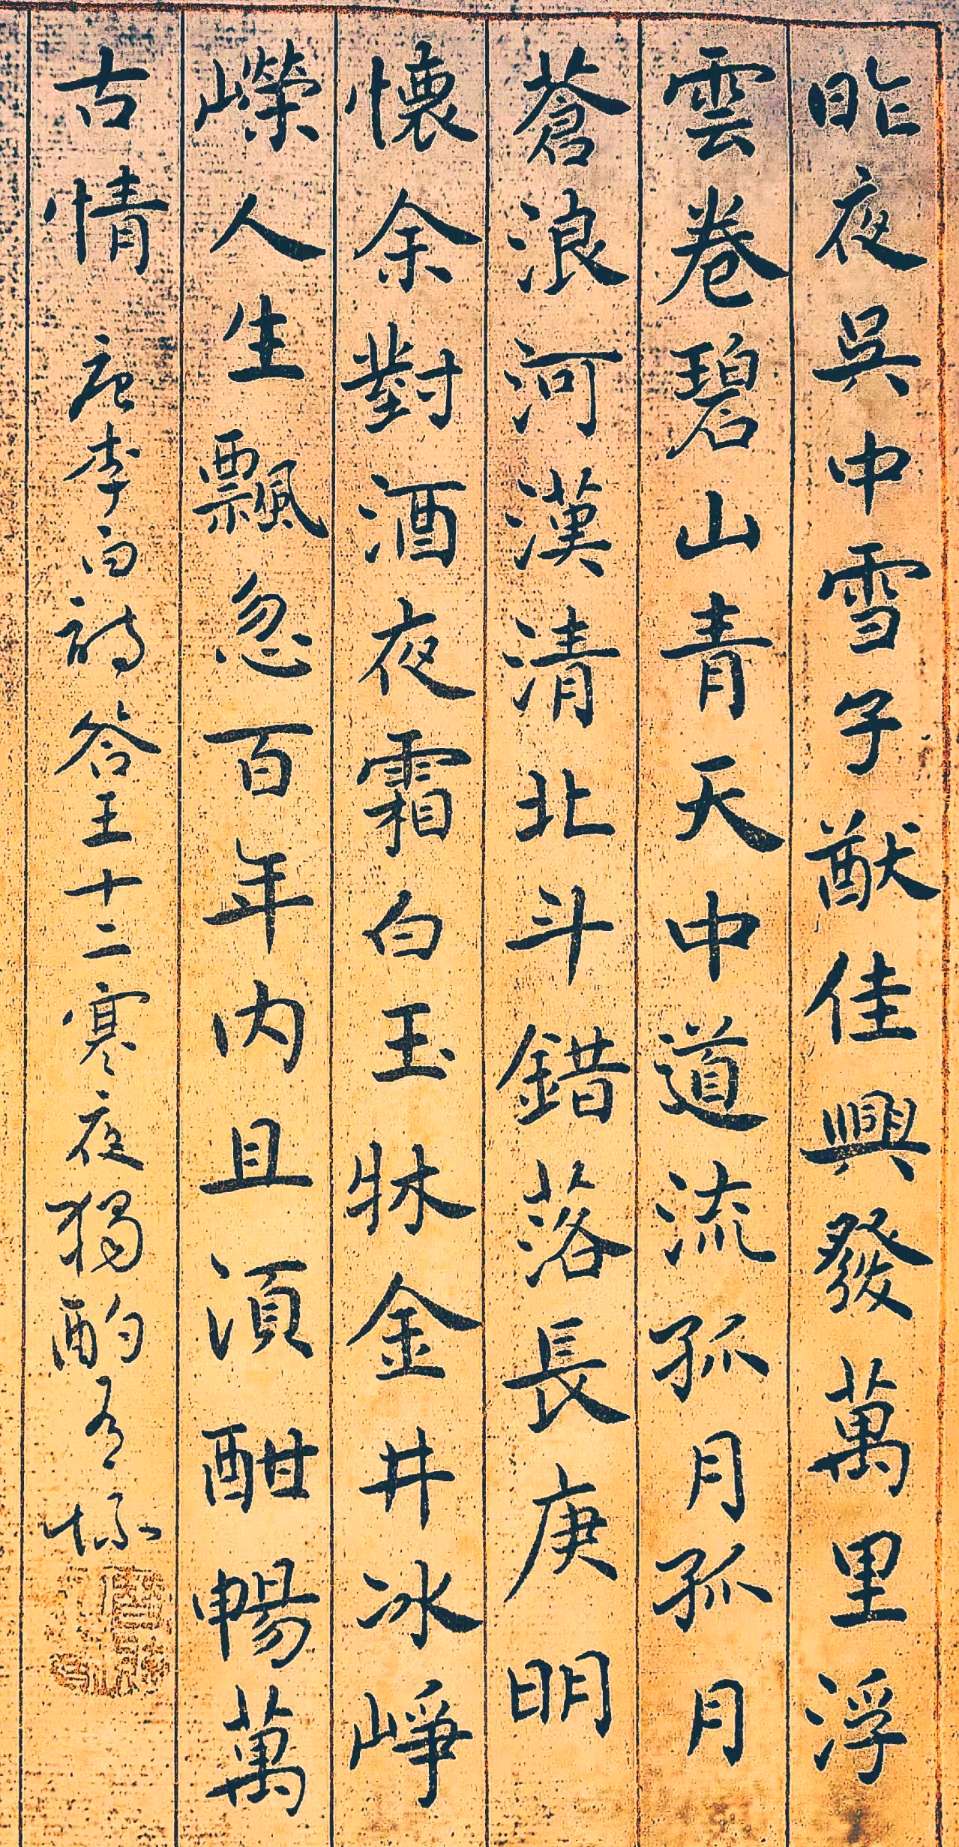 昨夜吳中雪子猷佳興發萬里浮
雲卷碧山青天中道流孤月孤月
蒼浪河漢清北斗錯落長庚明
懷余對酒夜霜白玉牀金井冰崢
嶸人生飄忽百年內且須酣暢萬
古情 唐李白詩答王十二寒夜獨酌有懷